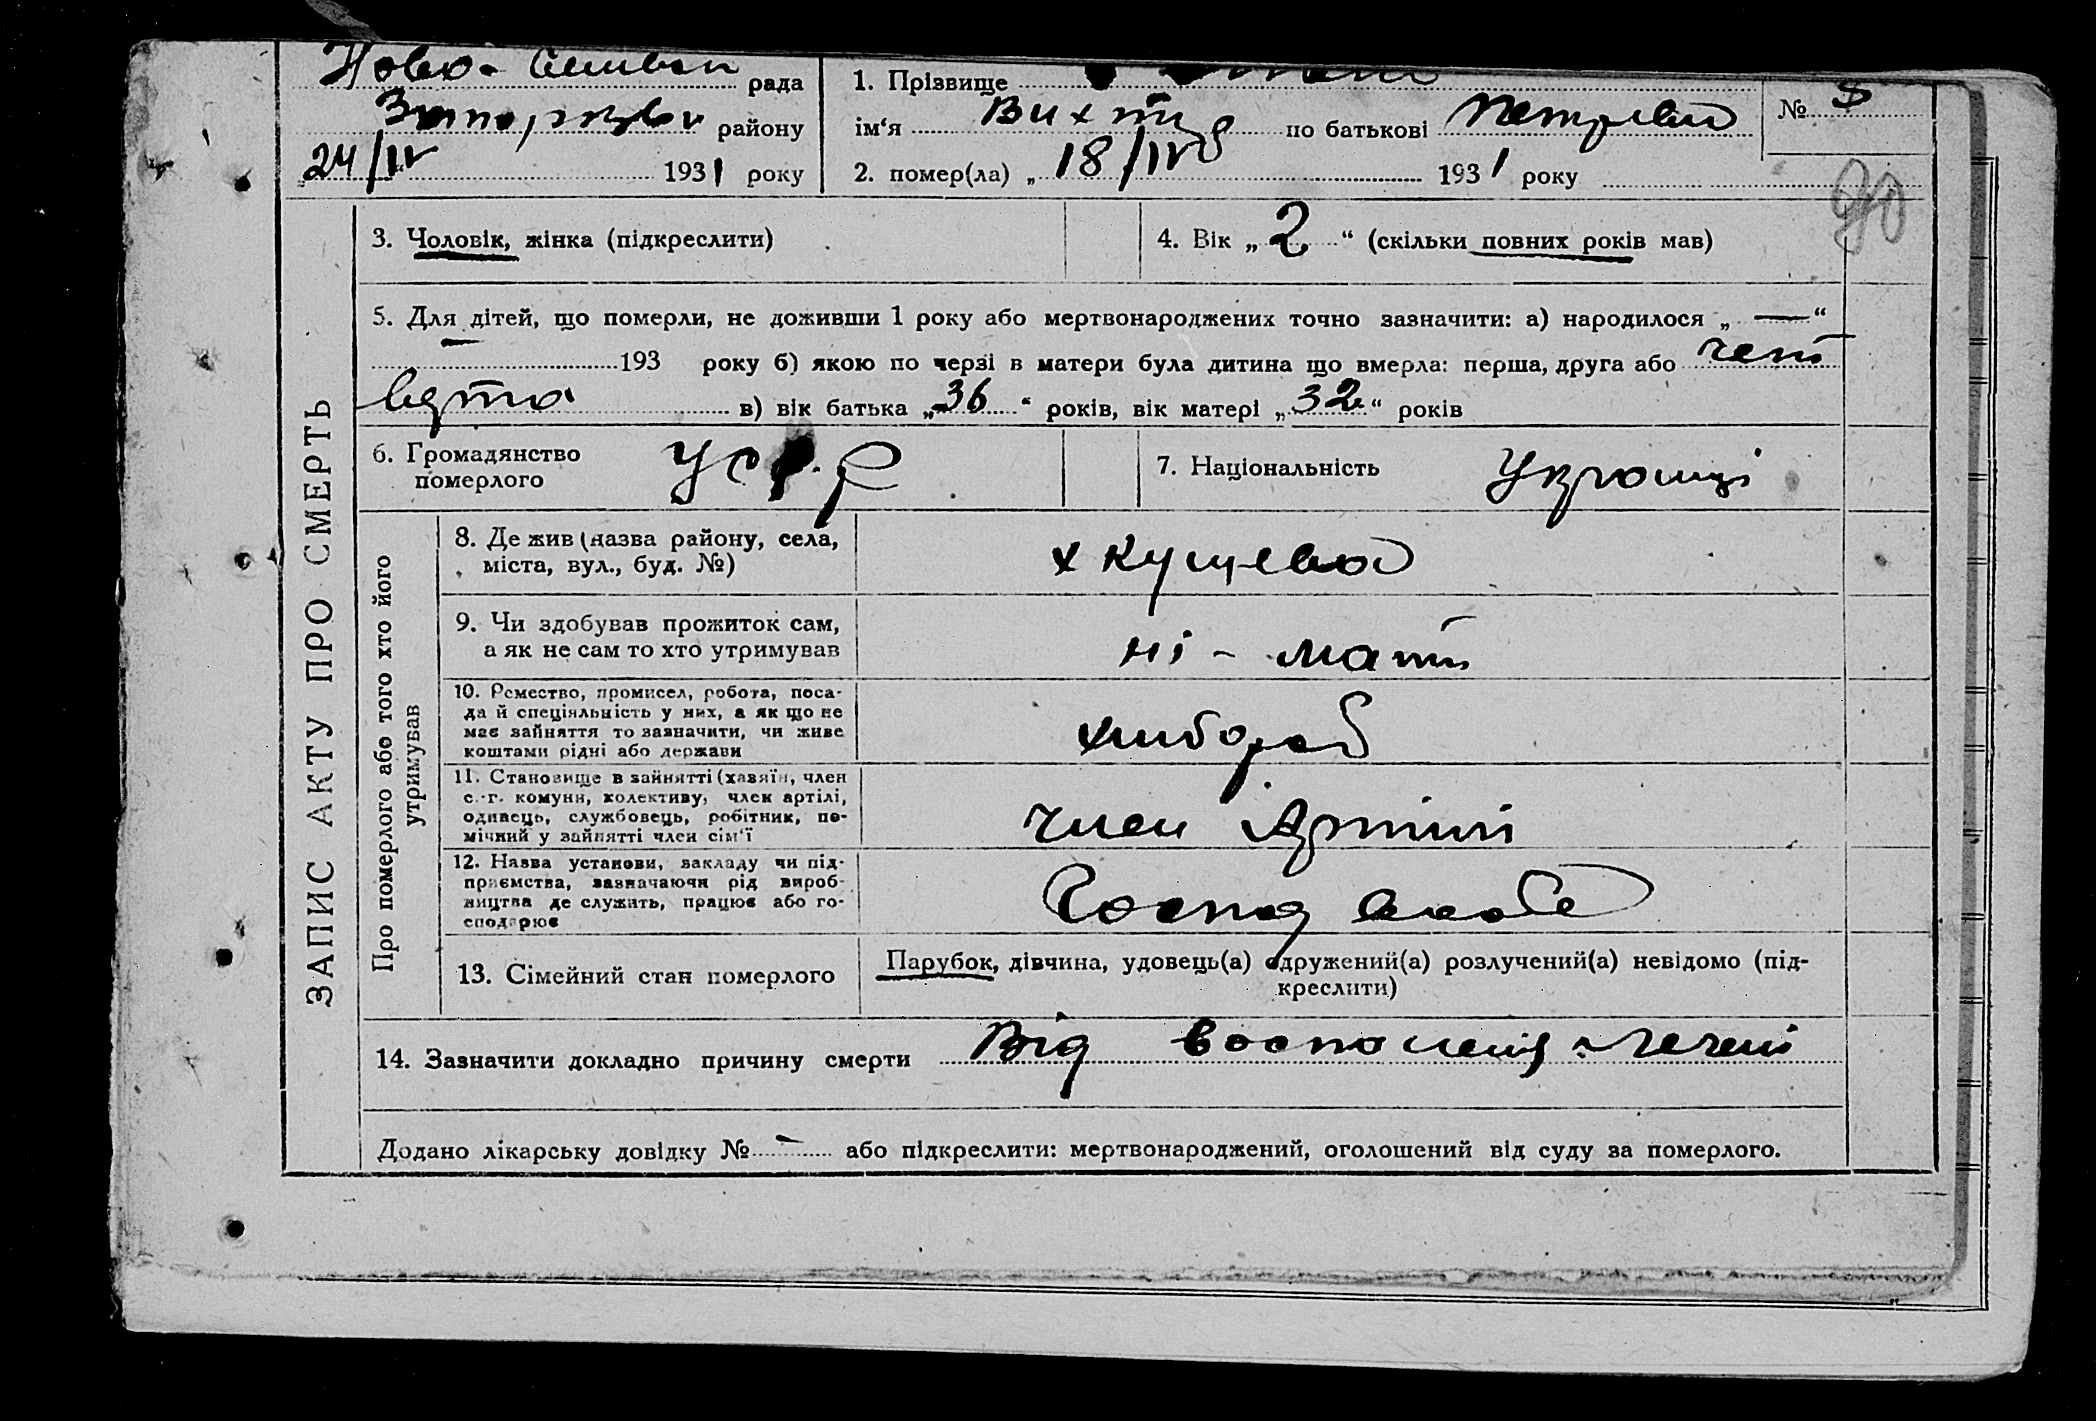 рада
1. Прізвище
району
ім‘я по батькові
№ 5
24/IV 1931 року
2. помер(ла) „ 18/IV 1931 року
90
ЗАПИС АКТУ ПРО СМЕРТЬ
3. Чоловік, жінка (підкреслити)
4. Вік „ 2 “ (скільки повних років мав)
5. Для дітей, що померли, не доживши 1 року або мертвонароджених точно зазначити: а) народилося „ — “
193 року б) якою по черзі в матери була дитина що вмерла: перша, друга або чет
в) вік батька „ 36 “ років, вік матері „ 32 “ років
6. Громадянство
померлого
УСРР
7. Національність
Про померлого або того хто його
утримував
8. Де жив (назва району, села,
міста, вул., буд. №)
х Кущева
9. Чи здобував прожиток сам,
а як не сам то хто утримував
ні - мати
10. Ремество, промисел, робота, поса-
да й спеціяльність у них, а як що не
має зайняття то зазначити, чи живе
коштами рідні або держави
хлібороб
11. Становище в зайнятті (хазяїн, член
с.-г. комуни, колективу, член артілі,
одинець, службовець, робітник, по-
мічний у зайнятті член сім‘ї
член Артілі
12. Назва установи, закладу чи під-
приємства, зазначаючи рід вироб-
ництва де служить, працює або го-
сподарює
13. Сімейний стан померлого
Парубок, дівчина, удовець(а) одружений(а) розлучений(а) невідомо (під-
креслити)
14. Зазначити докладно причину смерти Від
Додано лікарську довідку № — або підкреслити: мертвонароджений, оголошений від суду за померлого.